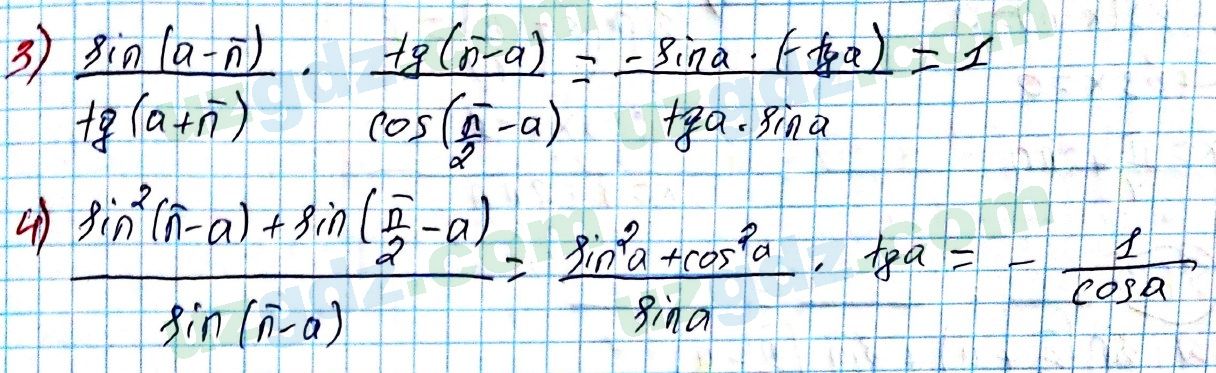 3) sin(a-π)/tg(a+π) · tg(π-a)/cos(π/2-a) = -sina·(-tga)/tga·sina = 1
4) sin²(π-a)+sin(π/2-a)/sin(π-a) = sin²a+cos²a/sina · tga = - 1/cosa
uzgdz.com